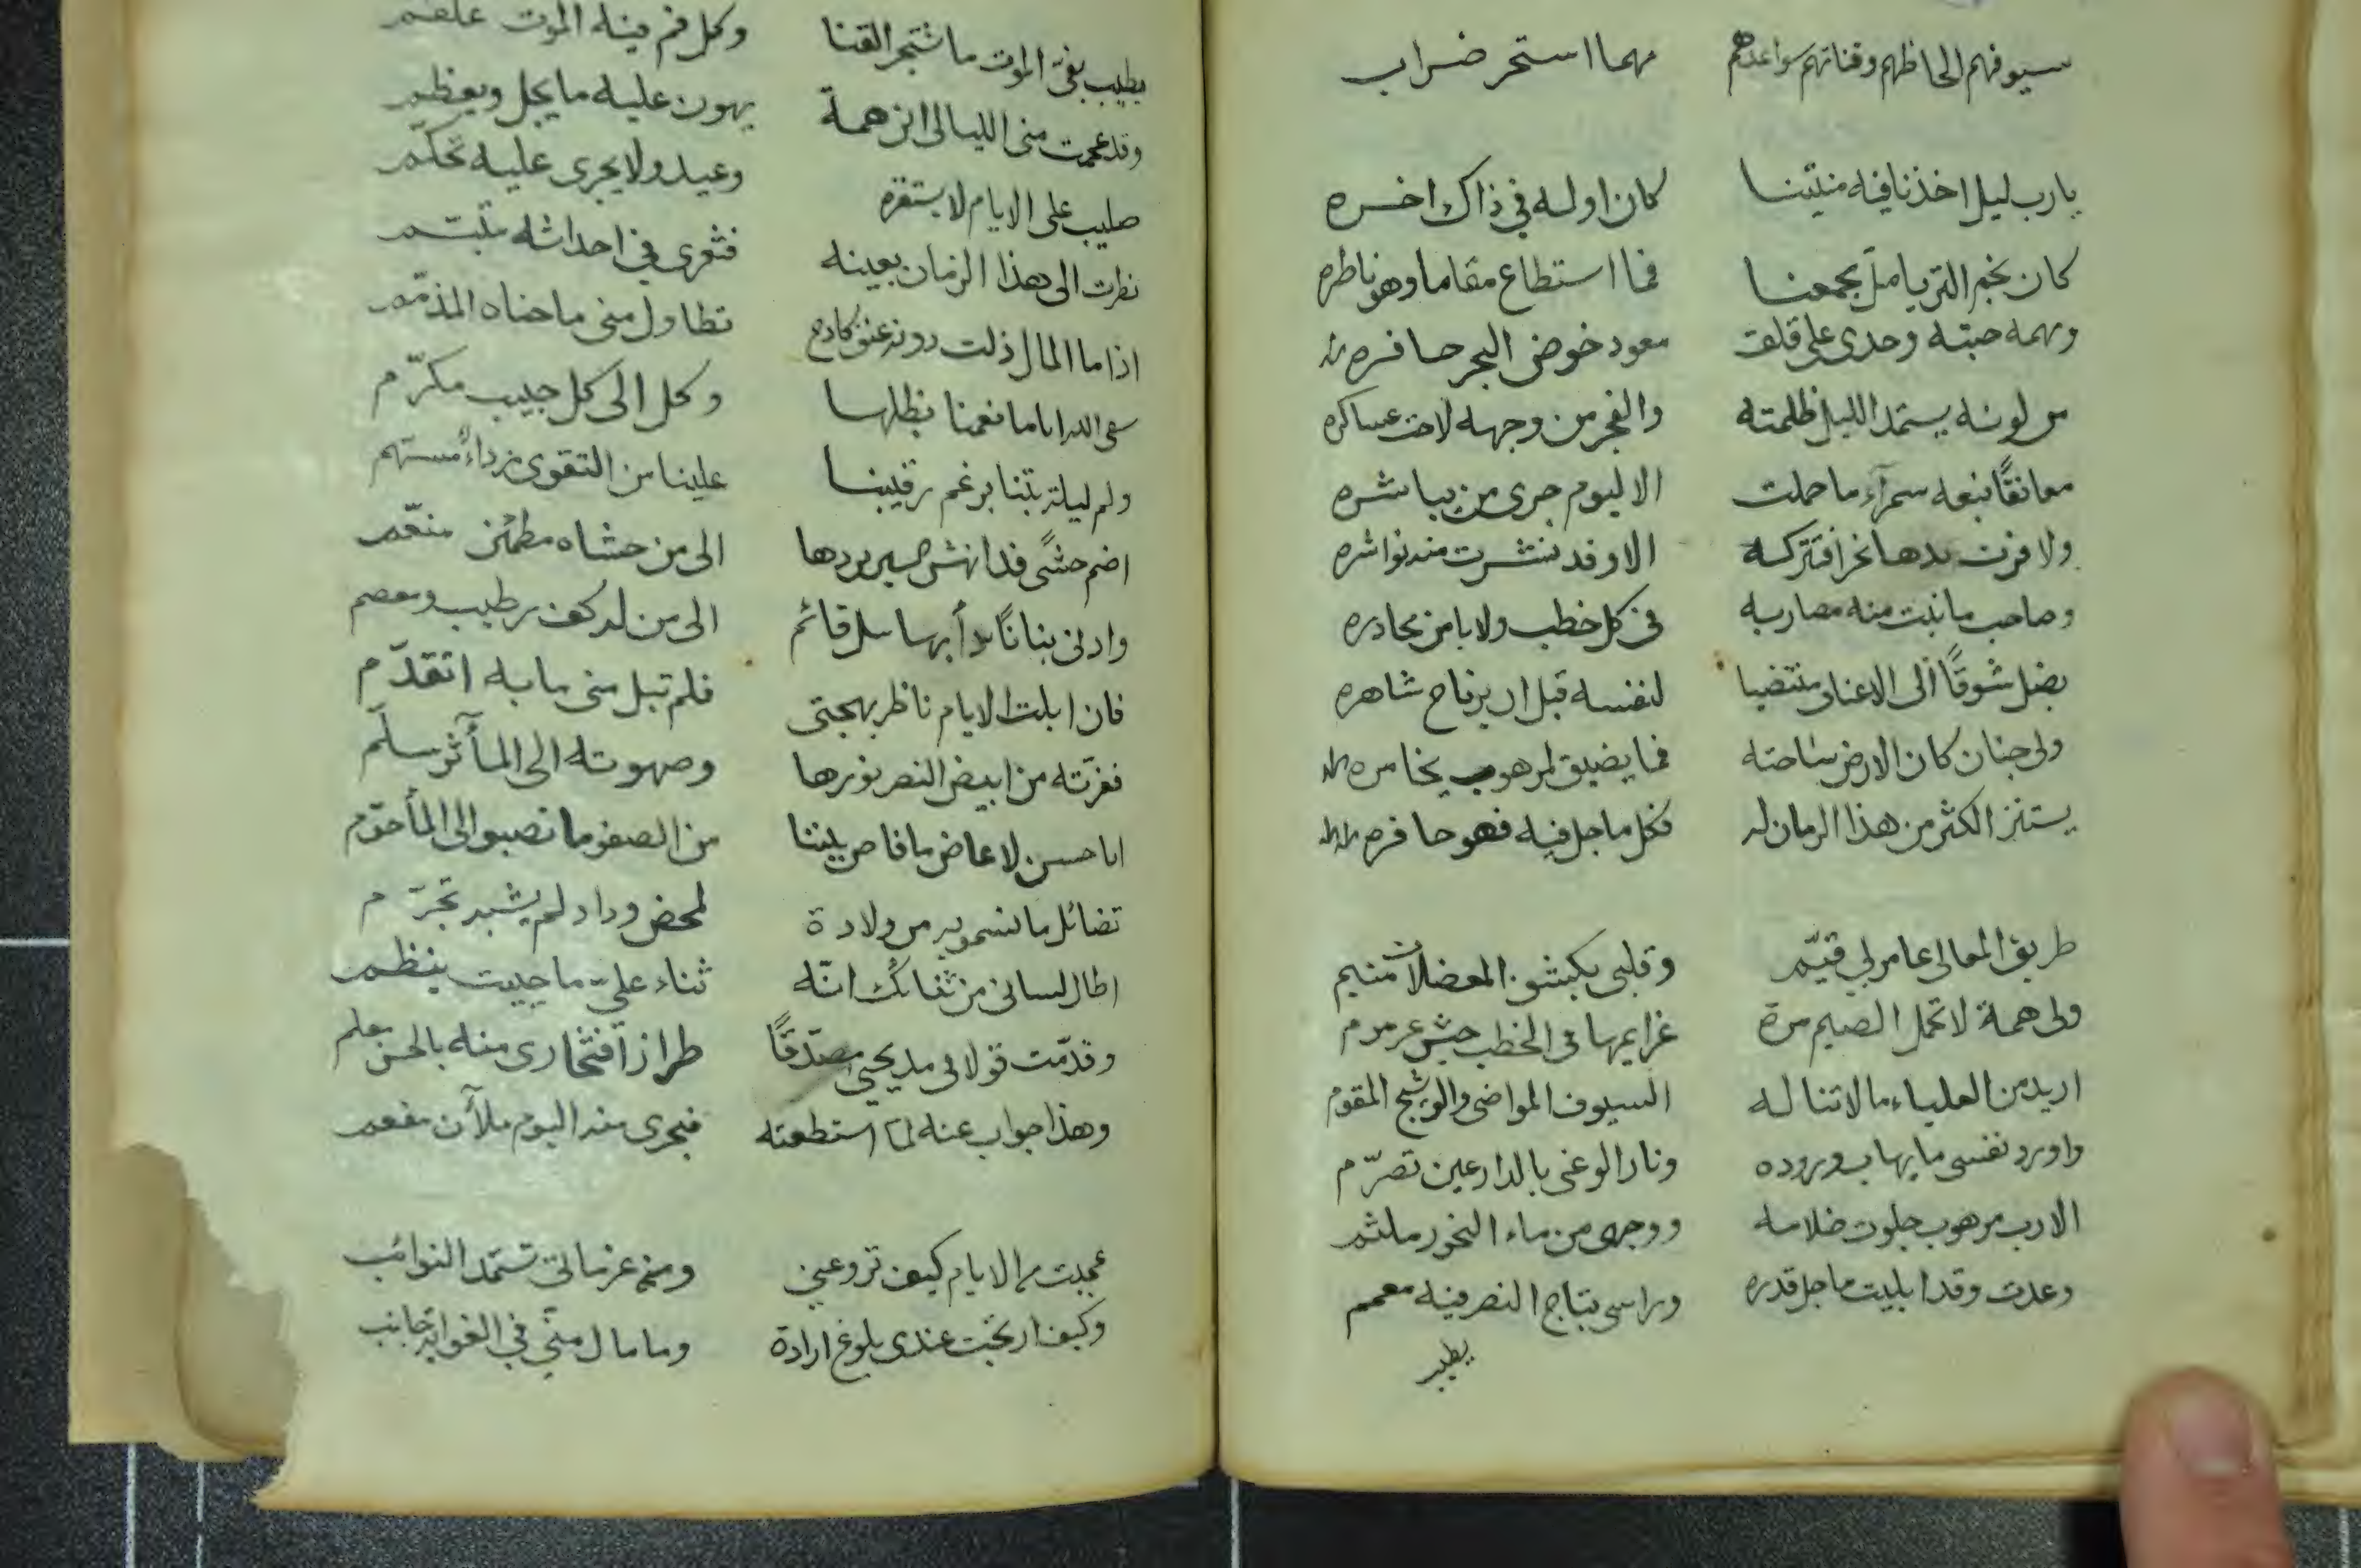 سيوفهم الحاظهم وقناتهم سواعدهم مهما استحر ضراب
يارب ليل اخذنا فيه منيتنا كان اوله في ذاك اخره
كان نجم الثريا مل بجمعنا فما استطاع مقاما وهو ناظره
ومهمه جبته وحدى على قلق معود خوض البحر حافره
من لونه يستمد الليل ظلمته والفجر من وجهه لاحت عساكره
معانقًا نبعه سمرآء ما حملت الا ليوم جرى من يباشره
ولا فزت بدها نحرا فتتركه الا وقد نشرت منه نواشره
وصاحب ما نبت منه مضاربه في كل خطب ولا يا من يحاذره
يضل شوقًا الى الاعناق منتضيا لنفسه قبل ان يرتاح شاهره
ولى جنان كان الارض ساحته فما يضيق لمرهوب يخامره
يستنزر الكثر من هذا الزمان له فكل ما جل فيه فهو حاقره
طريق المعالى عامر لي قيّم وقلبى بكشف المعضلات متيم
ولى همة لا تحمل الضيم مرة عزايمها فى الخطب جيش عرمرم
اريد من العلياء ما لا تناله السيوف المواضى والوشيج المقوم
واورد نفسى ما يهاب وروده ونار الوغى بالدارعين تضرّم
الا رب مرهوب جلوت ظلامه ووجهى من ماء النحور ملثم
وعدت وقد ابليت ما جل قدره وراسى بتاج النصر فيه معمم
يطيب
يطيب بفىّ الموت ما شتجر القنا وكل فم فيه الموت علقم
وقد عجمت منى الليالى ابن همة يهون عليه ما يجل ويعظم
صليب على الايام لا يستفزه وعيد ولا يجرى عليه تحكّم
نظرت الى هذا الزمان بعينه فثغرى في احداثه متبسم
اذا ما المال ذلت دونه عنق كادح تطاول منى ما حناه المذمّم
سقى الله اياما نعمنا بظلها وكل الى كل حبيب مكرّم
وكم ليلة بتنا برغم رقيبنا علينا من التقوى رداءٌ مسهّم
اضم حشًى قد انهش السير بردها الى من حشاه مطمئن منعّم
وادنى بنانًا دأبها سل قائم الى من له كف رطيب ومعصم
فان ابلت الايام ناظر بهجتى فلم تبل منى ما به اتقدّم
فغرّته من ابيض النصر نورها وصهوته الى المآثر سلّم
ابا حسن لا غاض ما فاض بيننا من الصفو ما نصبوا الى المأحوّم
تضائل ما نسمو به من ولادة لمحض وداد لم يشبه تجرّم
اطال لسانى من ثنائك انّه ثناء علىّ ما حييت ينظم
وقدّمت قولا فى مديحى مصدّقًا طراز افتخارى منه بالحسن معلم
وهذا جواب عنه لما استطعته فبحرى منه اليوم ملآن مفعم
عجبت من الايام كيف تروعنى ومن عزماتى تستمد النوائب
وكيف ارتجت عندى بلوغ ارادة وما مال منّى في الغواية جانب